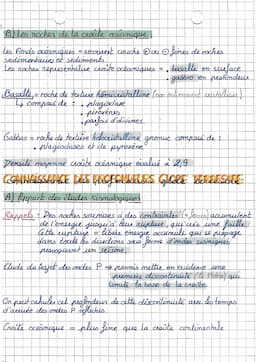 B) Les roches de la croûte océanique
Les fonds océaniques = souvent couche ⊕ ou ⊖ fines de roches
sédimentaires et sédiments
Les roches représentative croûte océaniques = . basalte en surface
. gabbro en profondeur
Basalte = roche de texture hémicristalline (non entièrement cristallisée)
↳ composé de : . plagioclase
. pyroxènes
. parfois d'olivines
Gabbro = roche de texture holocristalline grenue composé de :
. plagioclases et de pyroxène
Densité moyenne croûte océanique évalué à 2,9
CONNAISSANCE DES PROFONDEURS GLOBE TERRESTRE
A) Apport des études sismologiques
Rappels : Des roches soumises à des contraintes (= forces) accumulent
de l'énergie jusqu'à leur rupture, qui crée une faille
Cette rupture = libère énergie accumulé, qui se propage
dans toutes les directions sous forme d'ondes sismiques
provoquant un séisme.
Étude du trajet des ondes P → permis mettre en évidence une
première discontinuité (le Moho) qui
limite la base de la croûte.
On peut calculer cet profondeur de cette discontinuité avec les temps
d'arrivée des ondes P réfléchis
Croûte océanique = plus fine que la croûte continentale